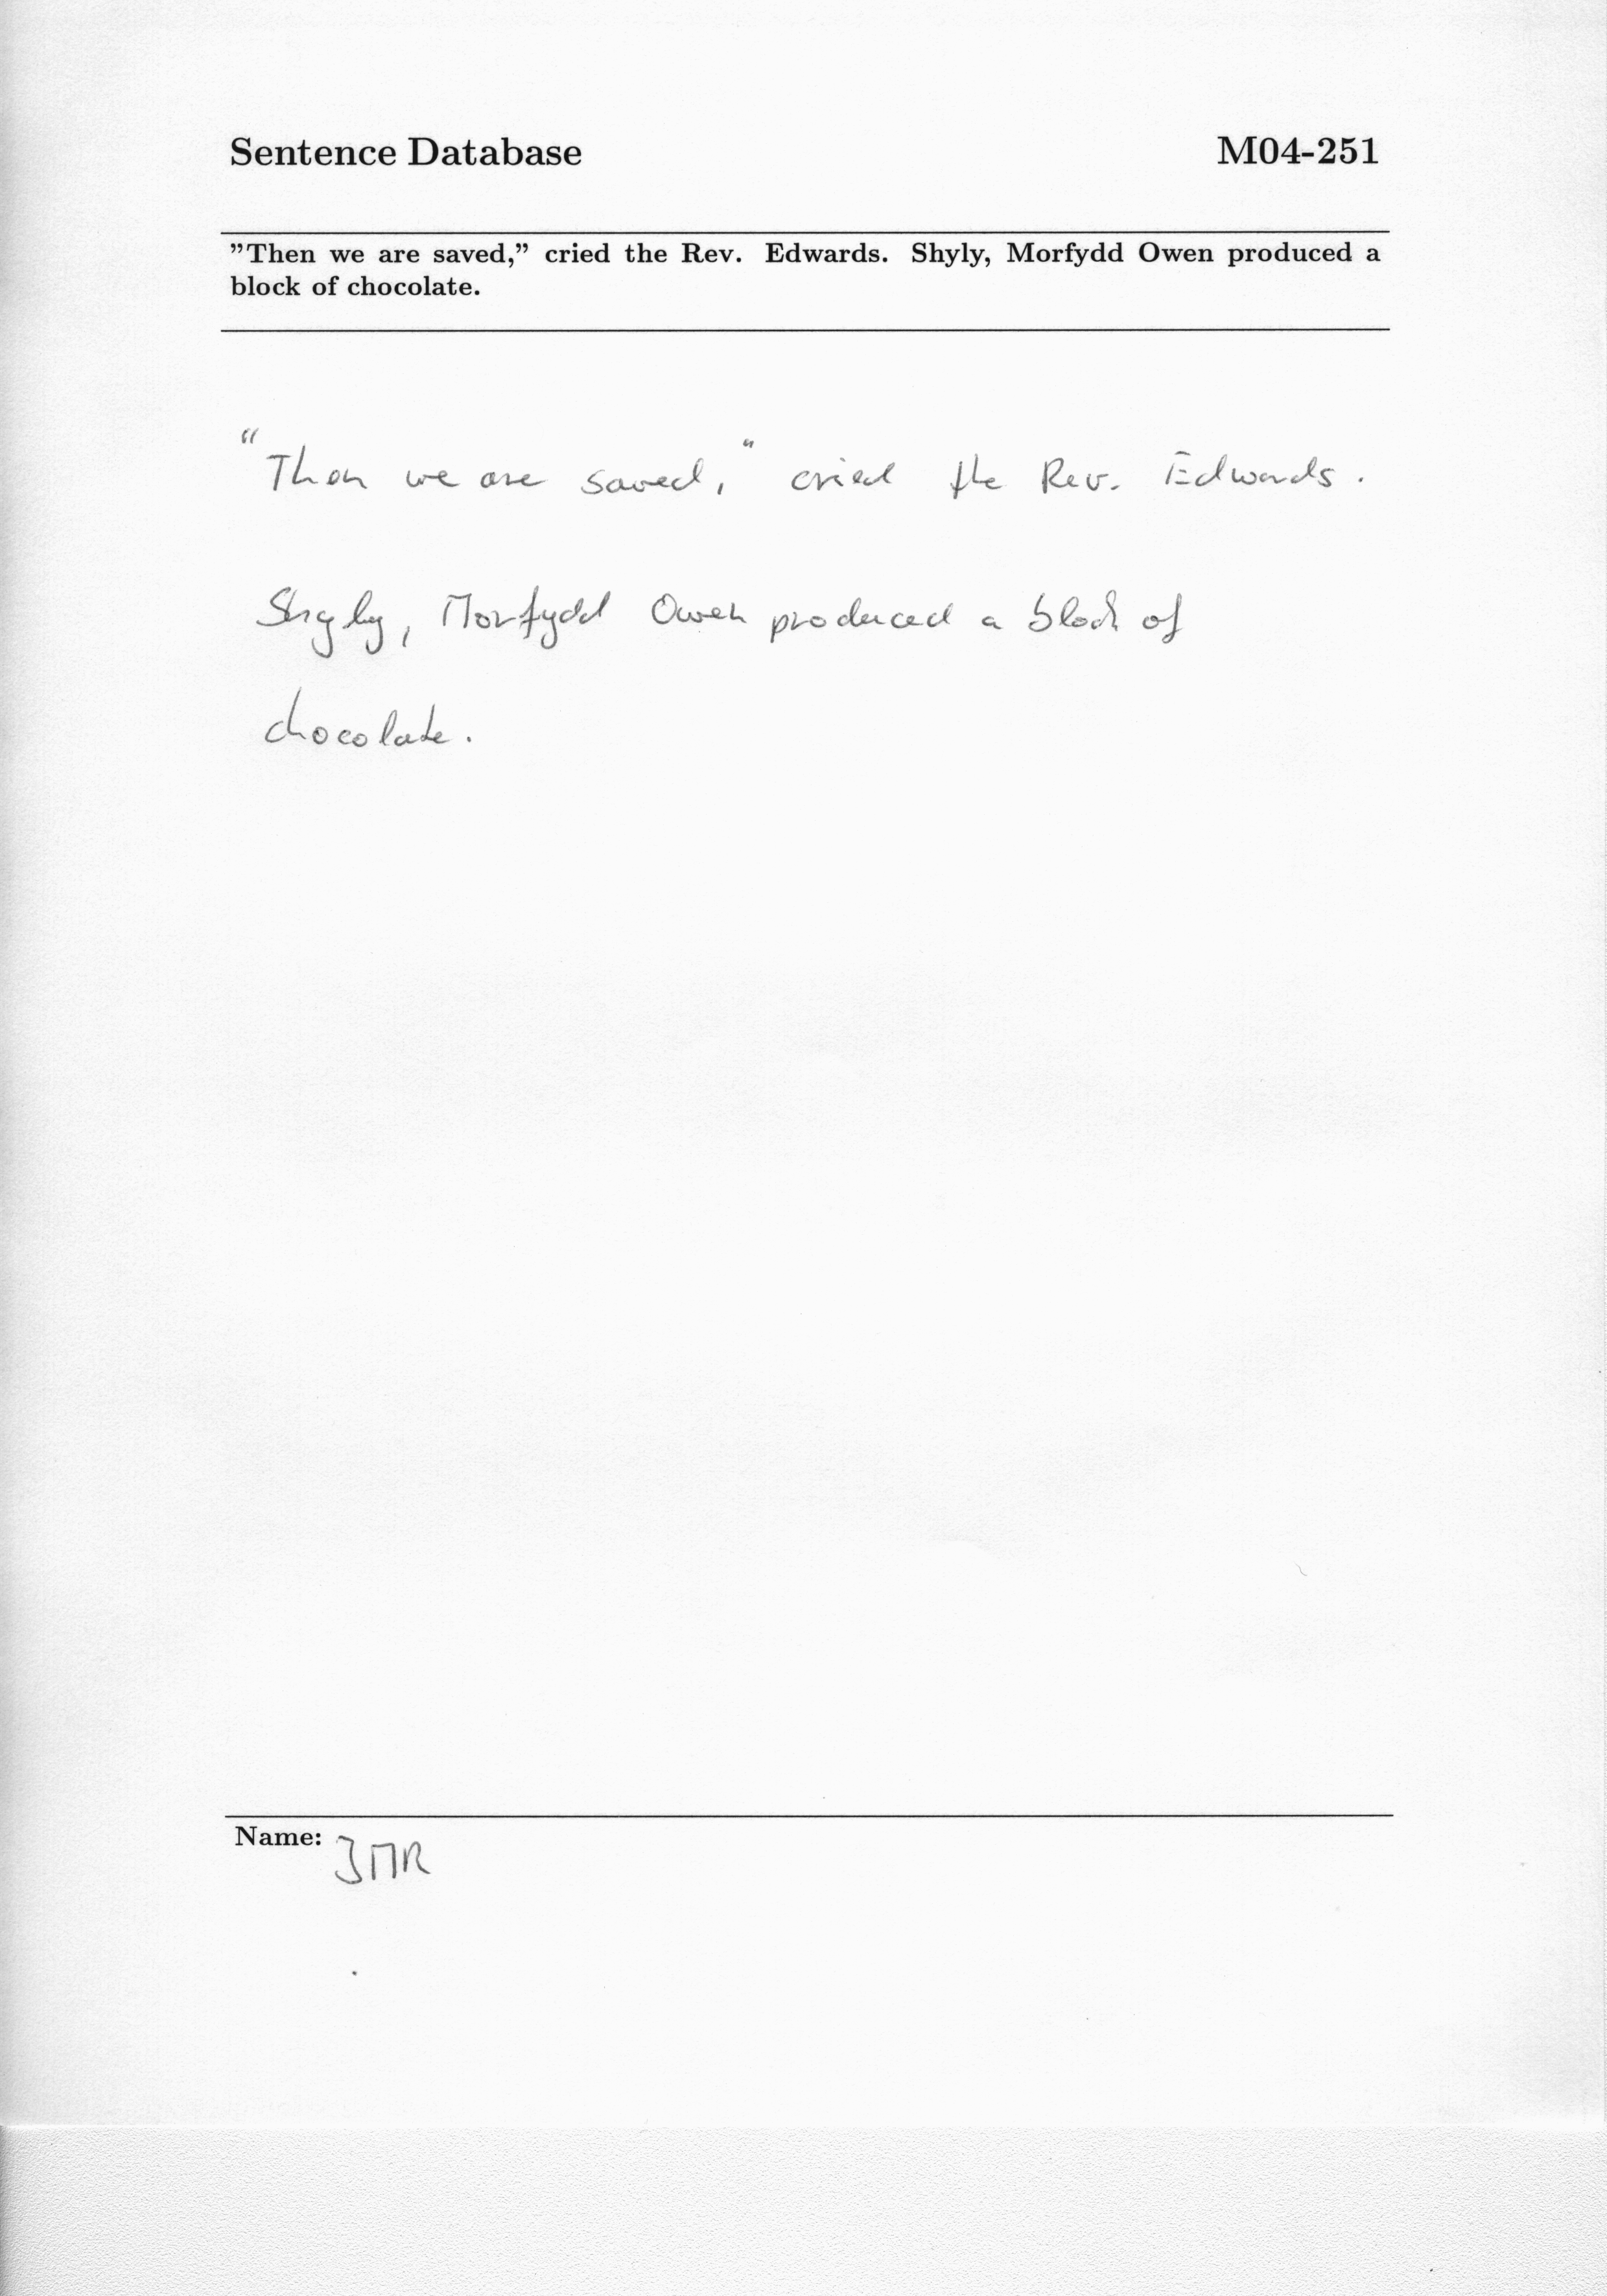 Sentence Database M04-251
”Then we are saved,” cried the Rev. Edwards. Shyly, Morfydd Owen produced a
block of chocolate.
“Then we are saved,“ cried the Rev. Edwards.
Shyly, Morfydd Owen produced a block of
chocolate.
Name: JMR